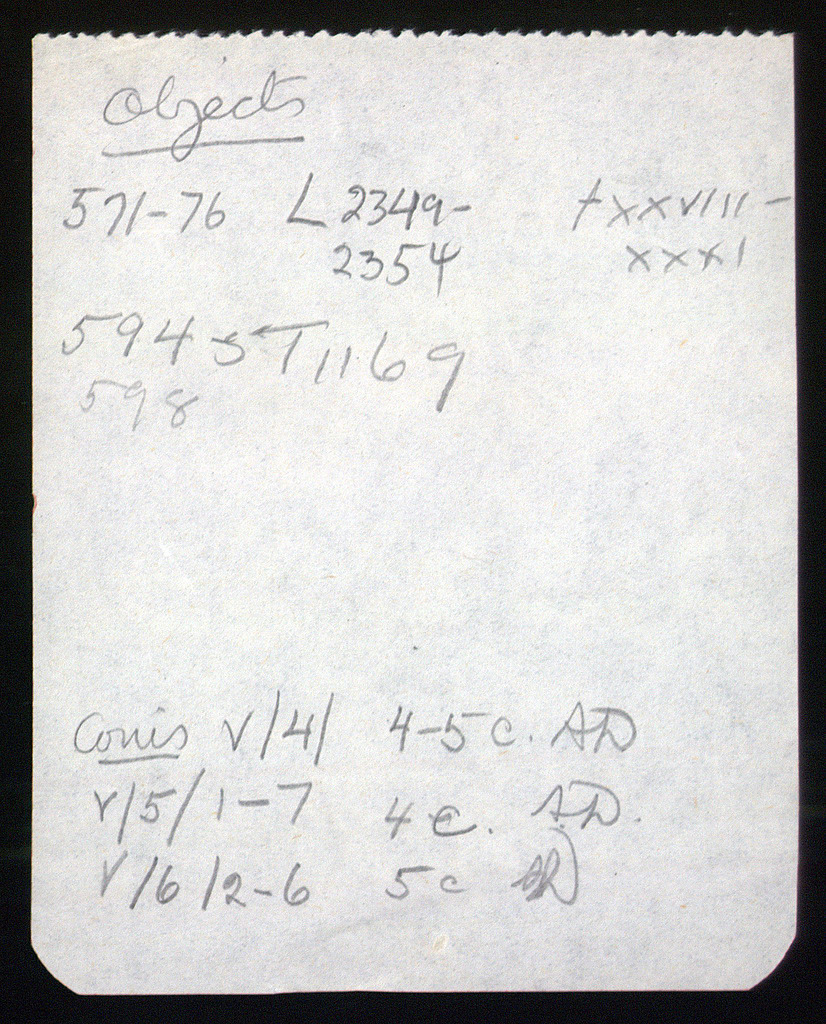 Objects
571-76 L 2349- + XXVIII-
2354 XXXI
594 ST 1169
598
Coins V/4/ 4-5 c. AD
V/5/1-7 4 c. A.D.
V/6/2-6 5 c AD